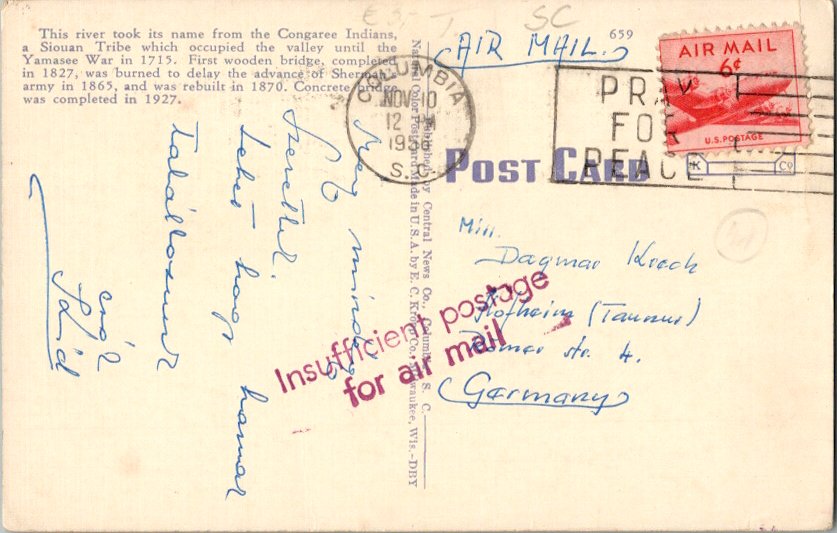 This river took its name from the Congaree Indians,
a Siouan Tribe which occupied the valley until the
Yamasee War in 1715. First wooden bridge, completed
in 1827, was burned to delay the advance of Sherman's
army in 1865, and was rebuilt in 1870. Concrete bridge
was completed in 1927.
SC
659
AIR MAIL.
AIR MAIL
6¢
U.S. POSTAGE
COLUMBIA
NOV 10
12 PM
S. C.
PRAY
FOR
PEACE
POST CARD
K Co
Published by Central News Co., Columbia, S. C.
Natural Color Postcard Made in U.S.A. by E. C. Kropp Co., Milwaukee, Wis.-DBY
Még mindég
Szeretlek.
Lehet hogy hamar
találkozunk
Miss.
Dagmar Krech
Hofheim (Taunus)
Romer str. 4.
Germany
Insufficient postage
for air mail